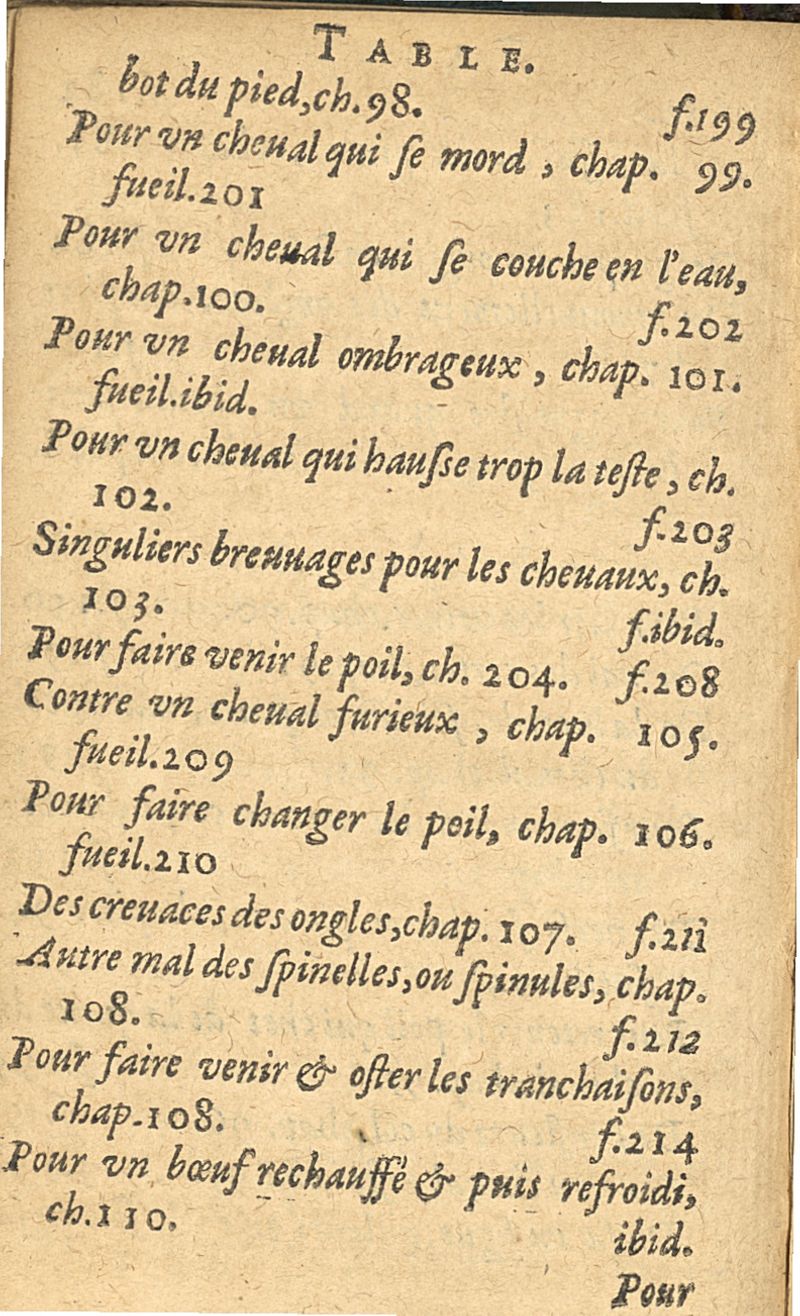 TABLE.
bot du pied, ch. 98. f.199
Pour vn cheual qui ſe mord, chap. 99.
fueil.201
Pour vn cheual qui ſe couche en l'eau,
chap.100. f.202
Pour vn cheual ombrageux, chap. 101.
fueil.ibid.
Pour vn cheual qui hauſse trop la teſte, ch.
102. f.203
Singuliers breuuages pour les cheuaux, ch.
103. f.ibid.
Pour faire venir le poil, ch. 204. f.208
Contre vn cheual furieux, chap. 105.
fueil.209
Pour faire changer le poil, chap. 106.
fueil.210
Des creuaces des ongles, chap. 107. f.211
Autre mal des ſpinelles, ou ſpinules, chap.
108. f.212
Pour faire venir & oſter les tranchaiſons,
chap.108. f.214
Pour vn bœuf rechauffé & puis refroidi,
ch.110. ibid.
Pour